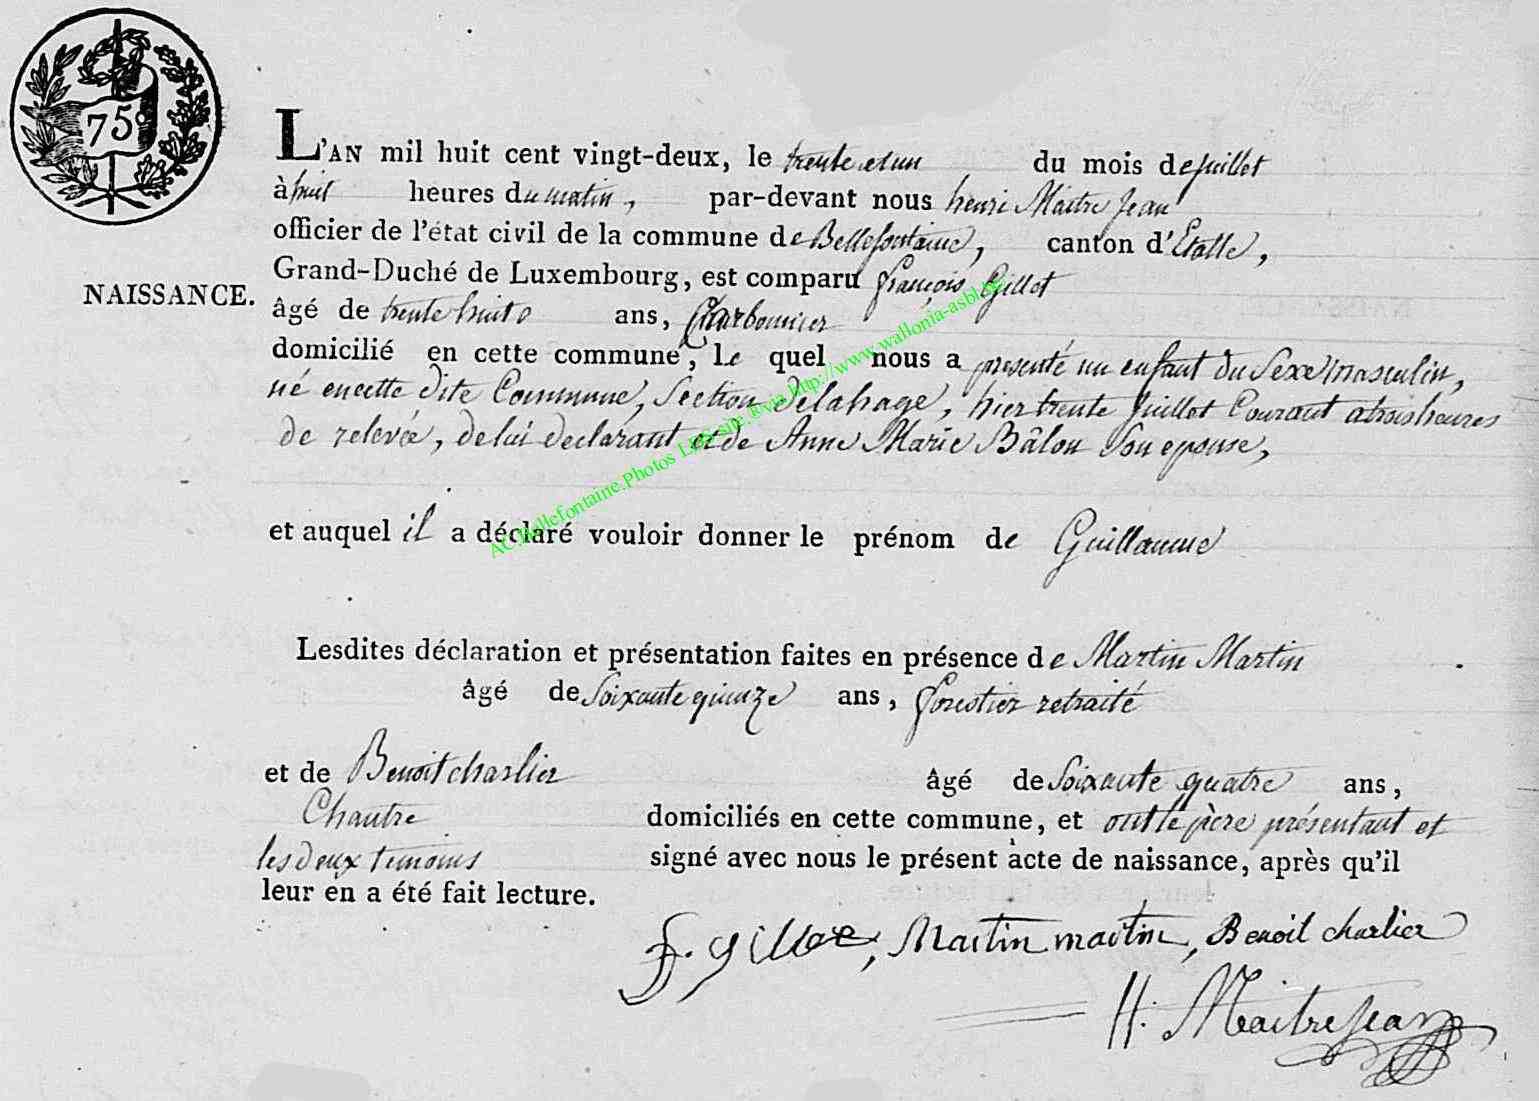 75c
L'AN mil huit cent vingt-deux, le trente et un du mois de juillet
à huit heures du matin, par-devant nous henri Maitre Jean
officier de l'état civil de la commune de Bellefontaine, canton d'Etalle,
Grand-Duché de Luxembourg, est comparu françois Gillet
NAISSANCE.
âgé de trente huit ans, Charbonnier
domicilié en cette commune, le quel nous a presenté un enfant du Sexe masculin,
né en cette dite Commune, Section de lahage, hier trente Juillet Courant a trois heures
de relevée, de lui declarant et de Anne Marie Bâlon Son epouse,
et auquel il a déclaré vouloir donner le prénom de Guillaume
AC.Bellefontaine.Photos LDS site ®via http://www.wallonia-asbl.be
Lesdites déclaration et présentation faites en présence de Martin Martin
âgé de Soixante quinze ans, forestier retraité
et de Benoit charlier âgé de Soixante quatre ans,
Chantre domiciliés en cette commune, et ont le père présentant et
les deux temoins signé avec nous le présent acte de naissance, après qu'il
leur en a été fait lecture.
f. gillet, Martin martin, Benoit charlier
H. Maitrejean